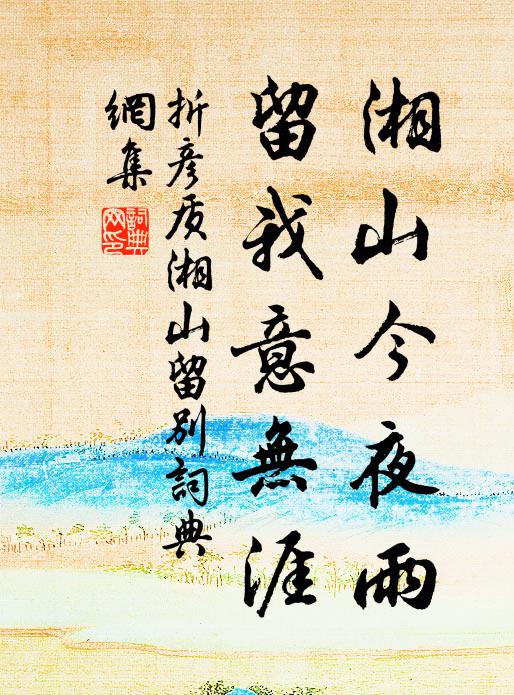 湘山今夜雨
留我意無涯
折彥质湘山留別詞典
網集
詞典
网印